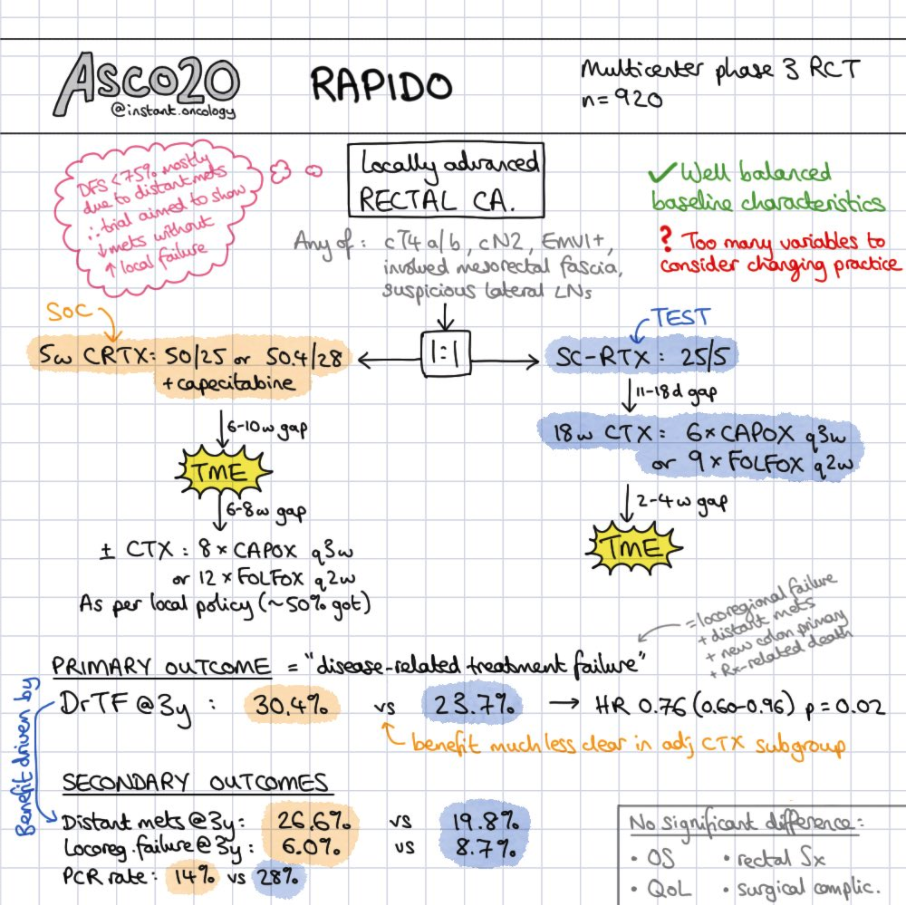 ASCO20
@instant.oncology
RAPIDO
Multicenter phase 3 RCT
n=920
DFS <75% mostly
due to distant mets
∴ trial aimed to show
↓ mets without
↑ local failure
Locally advanced
RECTAL CA.
Any of: cT4a/b, cN2, EMVI+,
involved mesorectal fascia,
suspicious lateral LNs
✓ Well balanced
baseline characteristics
? Too many variables to
consider changing practice
SOC
TEST
5w CRTX: 50/25 or 50.4/28
+capecitabine
1:1
SC-RTX: 25/5
11-18d gap
6-10w gap
18w CTX: 6×CAPOX q3w
or 9×FOLFOX q2w
TME
2-4w gap
6-8w gap
TME
± CTX: 8×CAPOX q3w
or 12×FOLFOX q2w
As per local policy (~50% got)
=locoregional failure
+ distant mets
+ new colon primary
+ Rx-related death
PRIMARY OUTCOME = "disease-related treatment failure"
DrTF @3y: 30.4% vs 23.7% → HR 0.76 (0.60-0.96) p=0.02
benefit much less clear in adj CTX subgroup
Benefit driven by
SECONDARY OUTCOMES
Distant mets @3y: 26.6% vs 19.8%
Locoreg. failure @3y: 6.0% vs 8.7%
PCR rate: 14% vs 28%
No significant difference:
• OS • rectal Sx
• QoL • surgical complic.